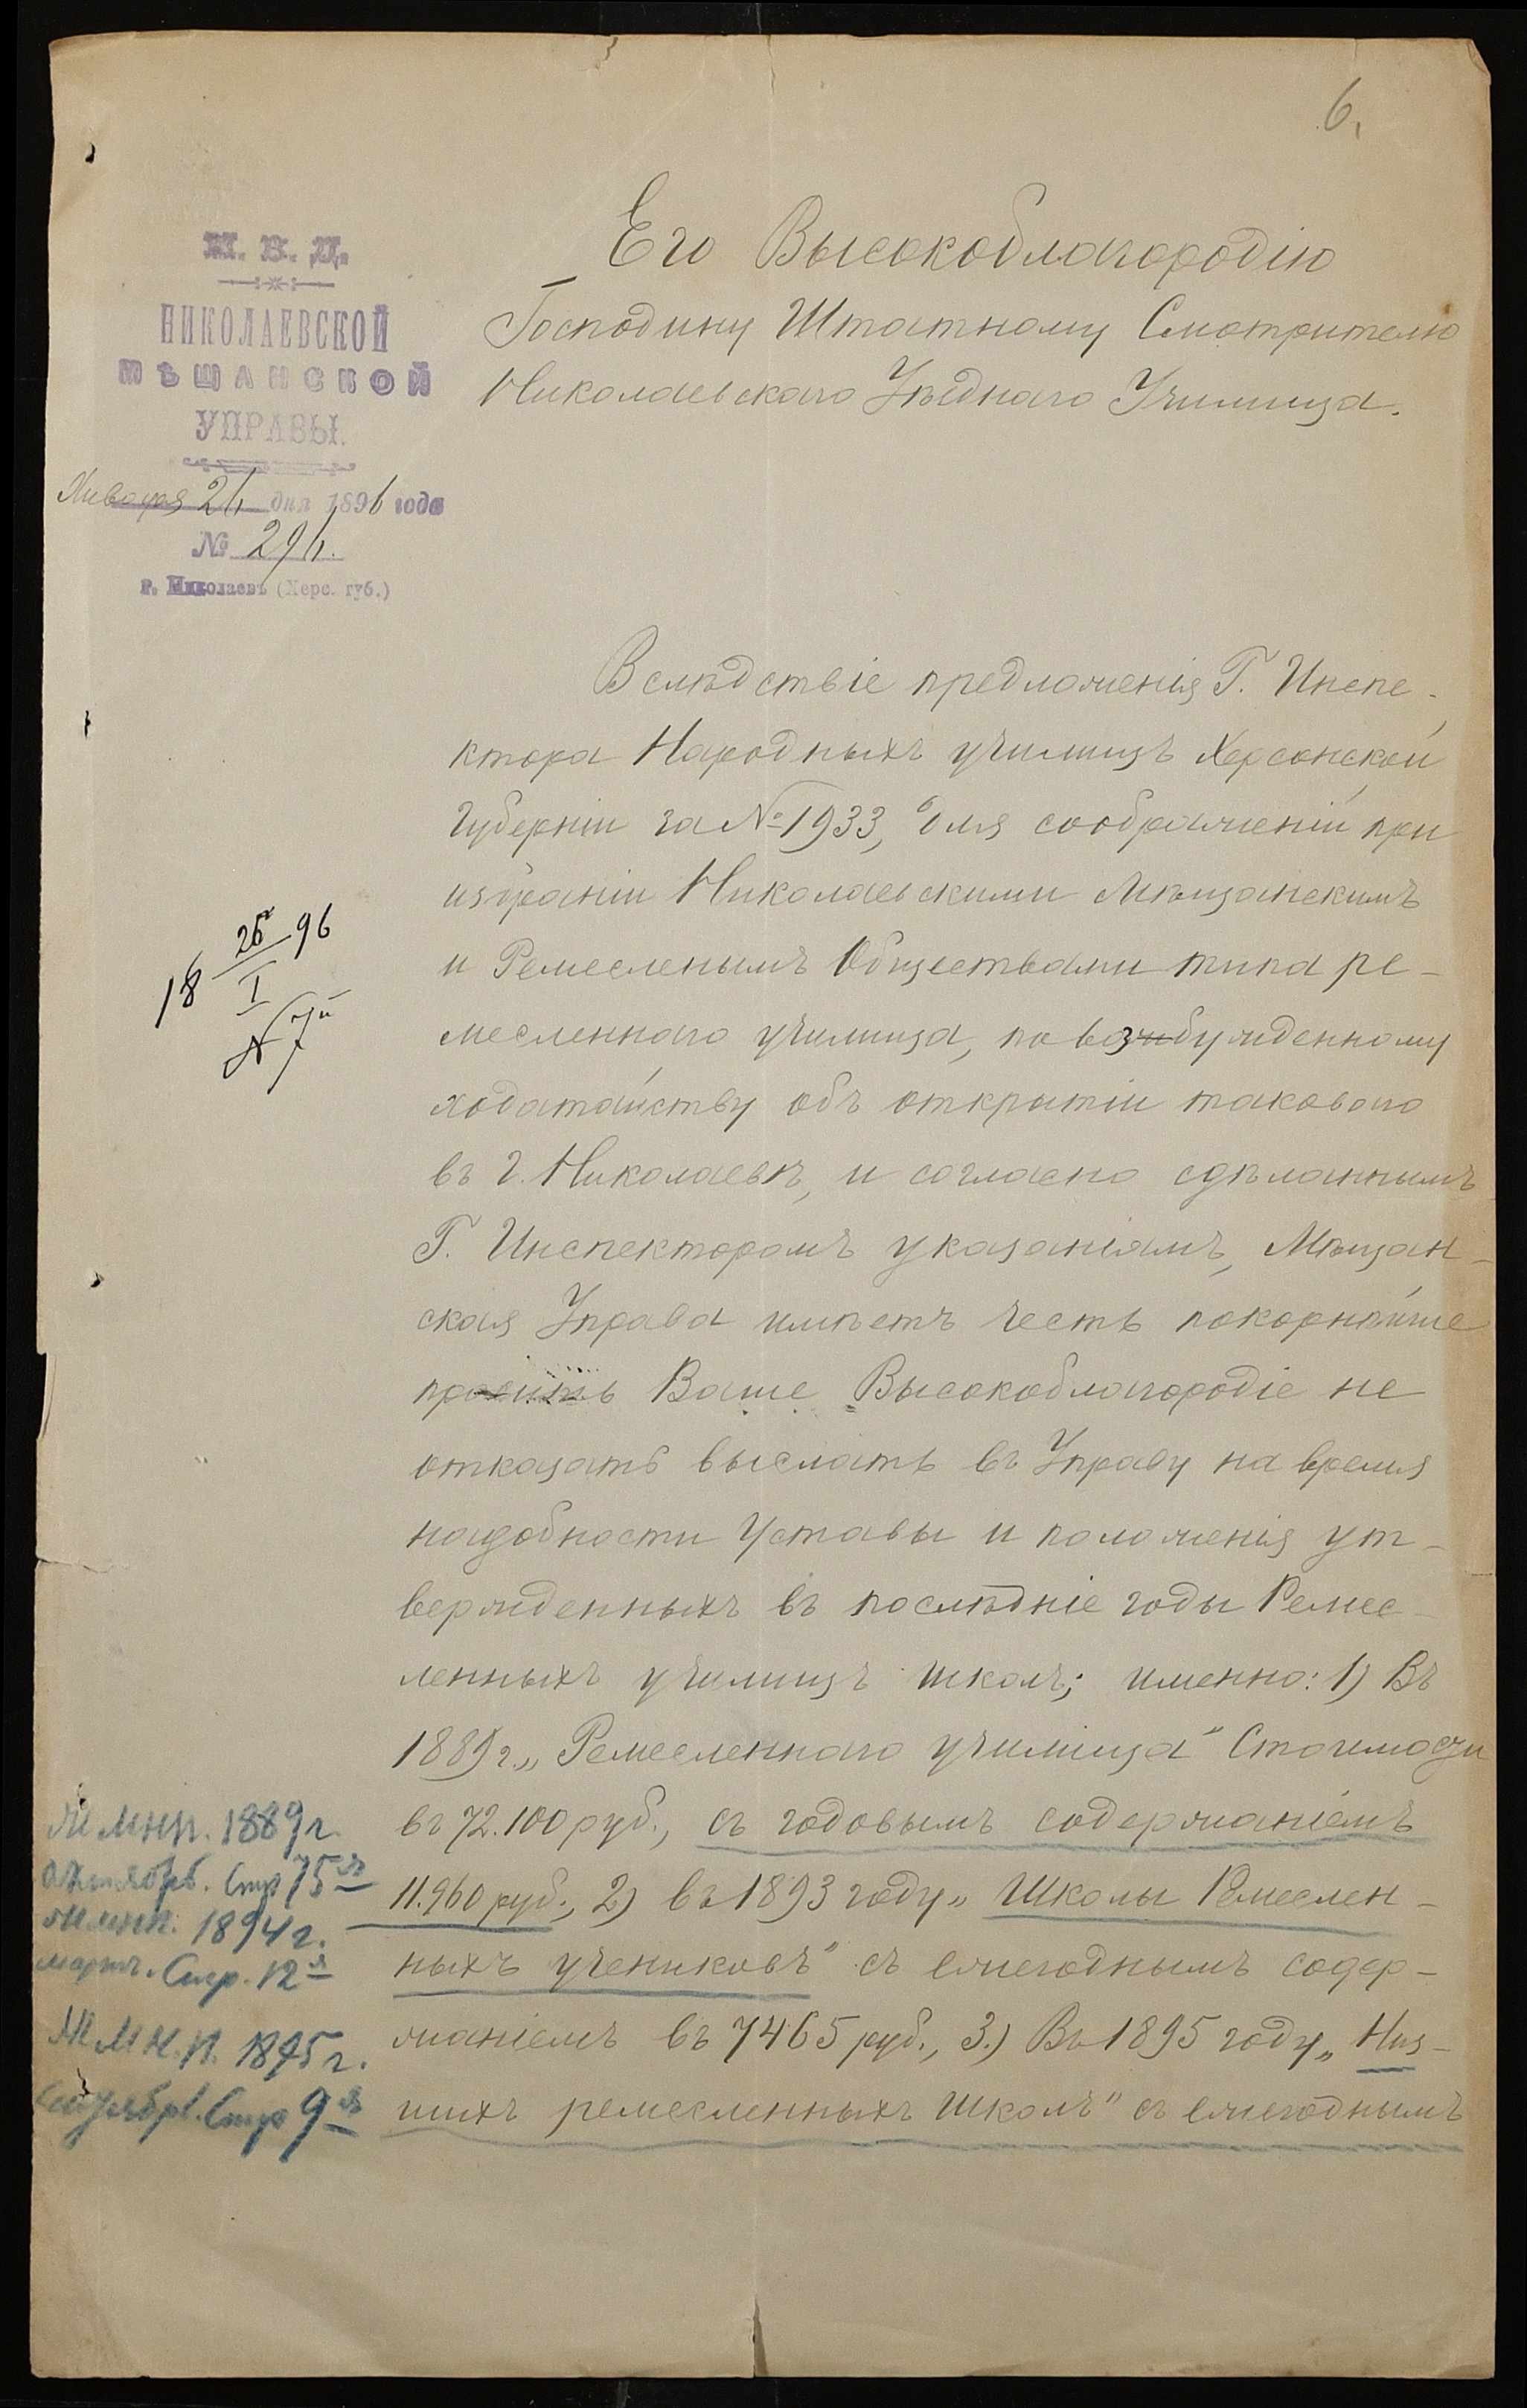 6.
М. В. Д.
НИКОЛАЕВСКОЙ
МѢЩАНСКОЙ
УПРАВЫ.
Января 24 дня 1896 года
№ 294.
г. Николаевъ (Херс. губ.)
Его Высокоблагородію
Господину Штатному Смотрителю
Николаевскаго Уѣзднаго Училища.
Вслѣдствіе предложенія Г. Инспе-
ктора Народныхъ училищъ Херсонской
Губерніи за № 1933, для соображеній при
избраніи Николаевскими Мѣщанскимъ
и Ремесленымъ Обществами типа ре-
месленнаго училища, по возбужденному
ходатайству объ открытіи таковаго
въ г. Николаевѣ, и согласно сдѣланнымъ
Г. Инспекторомъ указаніямъ, Мѣщан-
ская Управа имѣетъ честь покорнѣйше
просить Ваше Высокоблагородіе не
отказать выслать въ Управу на время
надобности Уставы и положенія ут-
вержденныхъ въ послѣдніе годы Ремес-
ленныхъ училищъ школъ; именно: 1) Въ
1889 г. „Ремесленнаго училища" Стоимости
въ 72.100 руб., съ годовымъ содержаніемъ
11.960 руб., 2) въ 1893 году „Школы Ремеслен-
ныхъ учениковъ" съ ежегоднымъ содер-
жаніемъ въ 7465 руб., 3.) Въ 1895 году „Низ-
шихъ ремесленныхъ школъ" съ ежегоднымъ
18 25/I 96
№ 7й
Ж мнп. 1889 г.
октябрь. Стр 75я
Ж мнп. 1894 г.
мартъ. Стр. 12я
Ж М Н. П. 1895 г.
Стр 9я